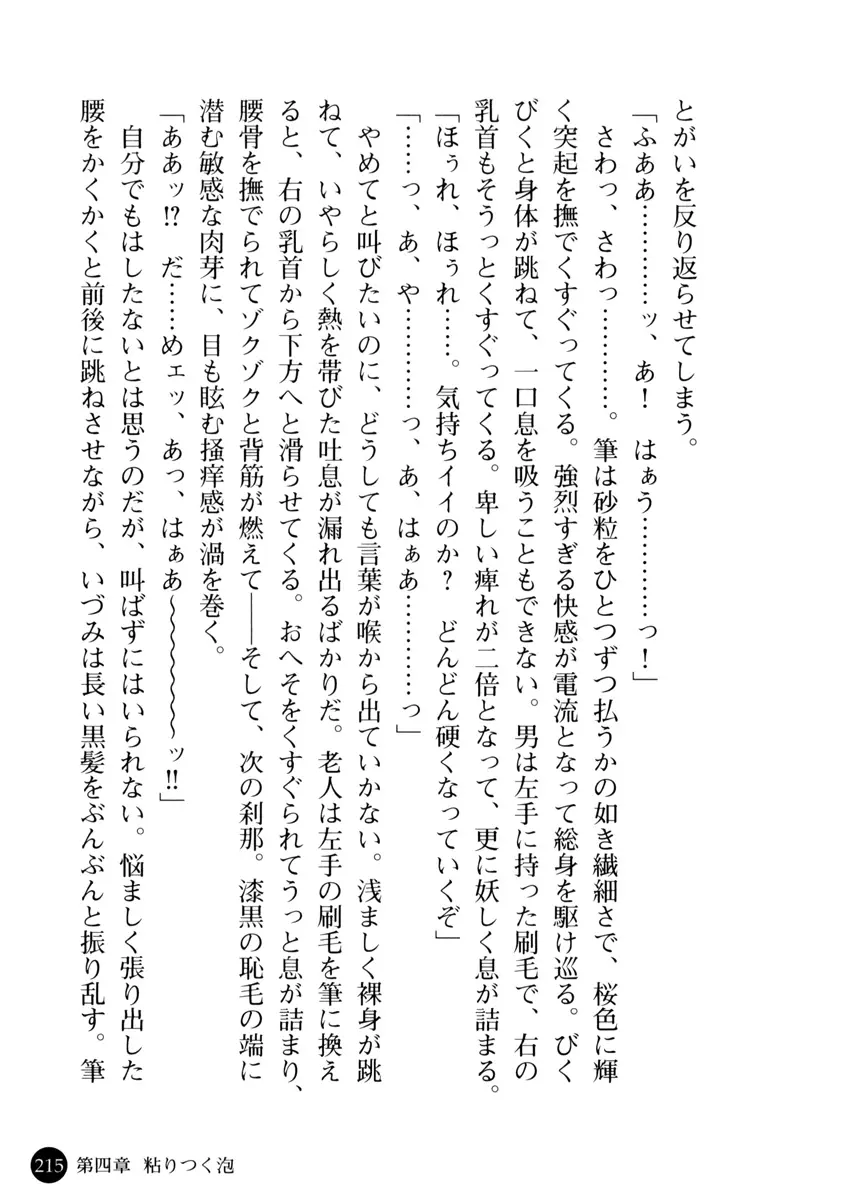 とがいを反り返らせてしまう。
「ふああ…………ッ、あ！　はぁう…………っ！」
　さわっ、さわっ…………。筆は砂粒をひとつずつ払うかの如き繊細さで、桜色に輝
く突起を撫でくすぐってくる。強烈すぎる快感が電流となって総身を駆け巡る。びく
びくと身体が跳ねて、一口息を吸うこともできない。男は左手に持った刷毛で、右の
乳首もそうっとくすぐってくる。卑しい痺れが二倍となって、更に妖しく息が詰まる。
「ほぅれ、ほぅれ……。気持ちイイのか？　どんどん硬くなっていくぞ」
「……っ、あ、や…………っ、あ、はぁあ…………っ」
　やめてと叫びたいのに、どうしても言葉が喉から出ていかない。浅ましく裸身が跳
ねて、いやらしく熱を帯びた吐息が漏れ出るばかりだ。老人は左手の刷毛を筆に換え
ると、右の乳首から下方へと滑らせてくる。おへそをくすぐられてうっと息が詰まり、
腰骨を撫でられてゾクゾクと背筋が燃えて――そして、次の刹那。漆黒の恥毛の端に
潜む敏感な肉芽に、目も眩む掻痒感が渦を巻く。
「ああッ!?　だ……めェッ、あっ、はぁあ～～～～～～ッ!!」
　自分でもはしたないとは思うのだが、叫ばずにはいられない。悩ましく張り出した
腰をかくかくと前後に跳ねさせながら、いづみは長い黒髪をぶんぶんと振り乱す。筆
215 第四章 粘りつく泡